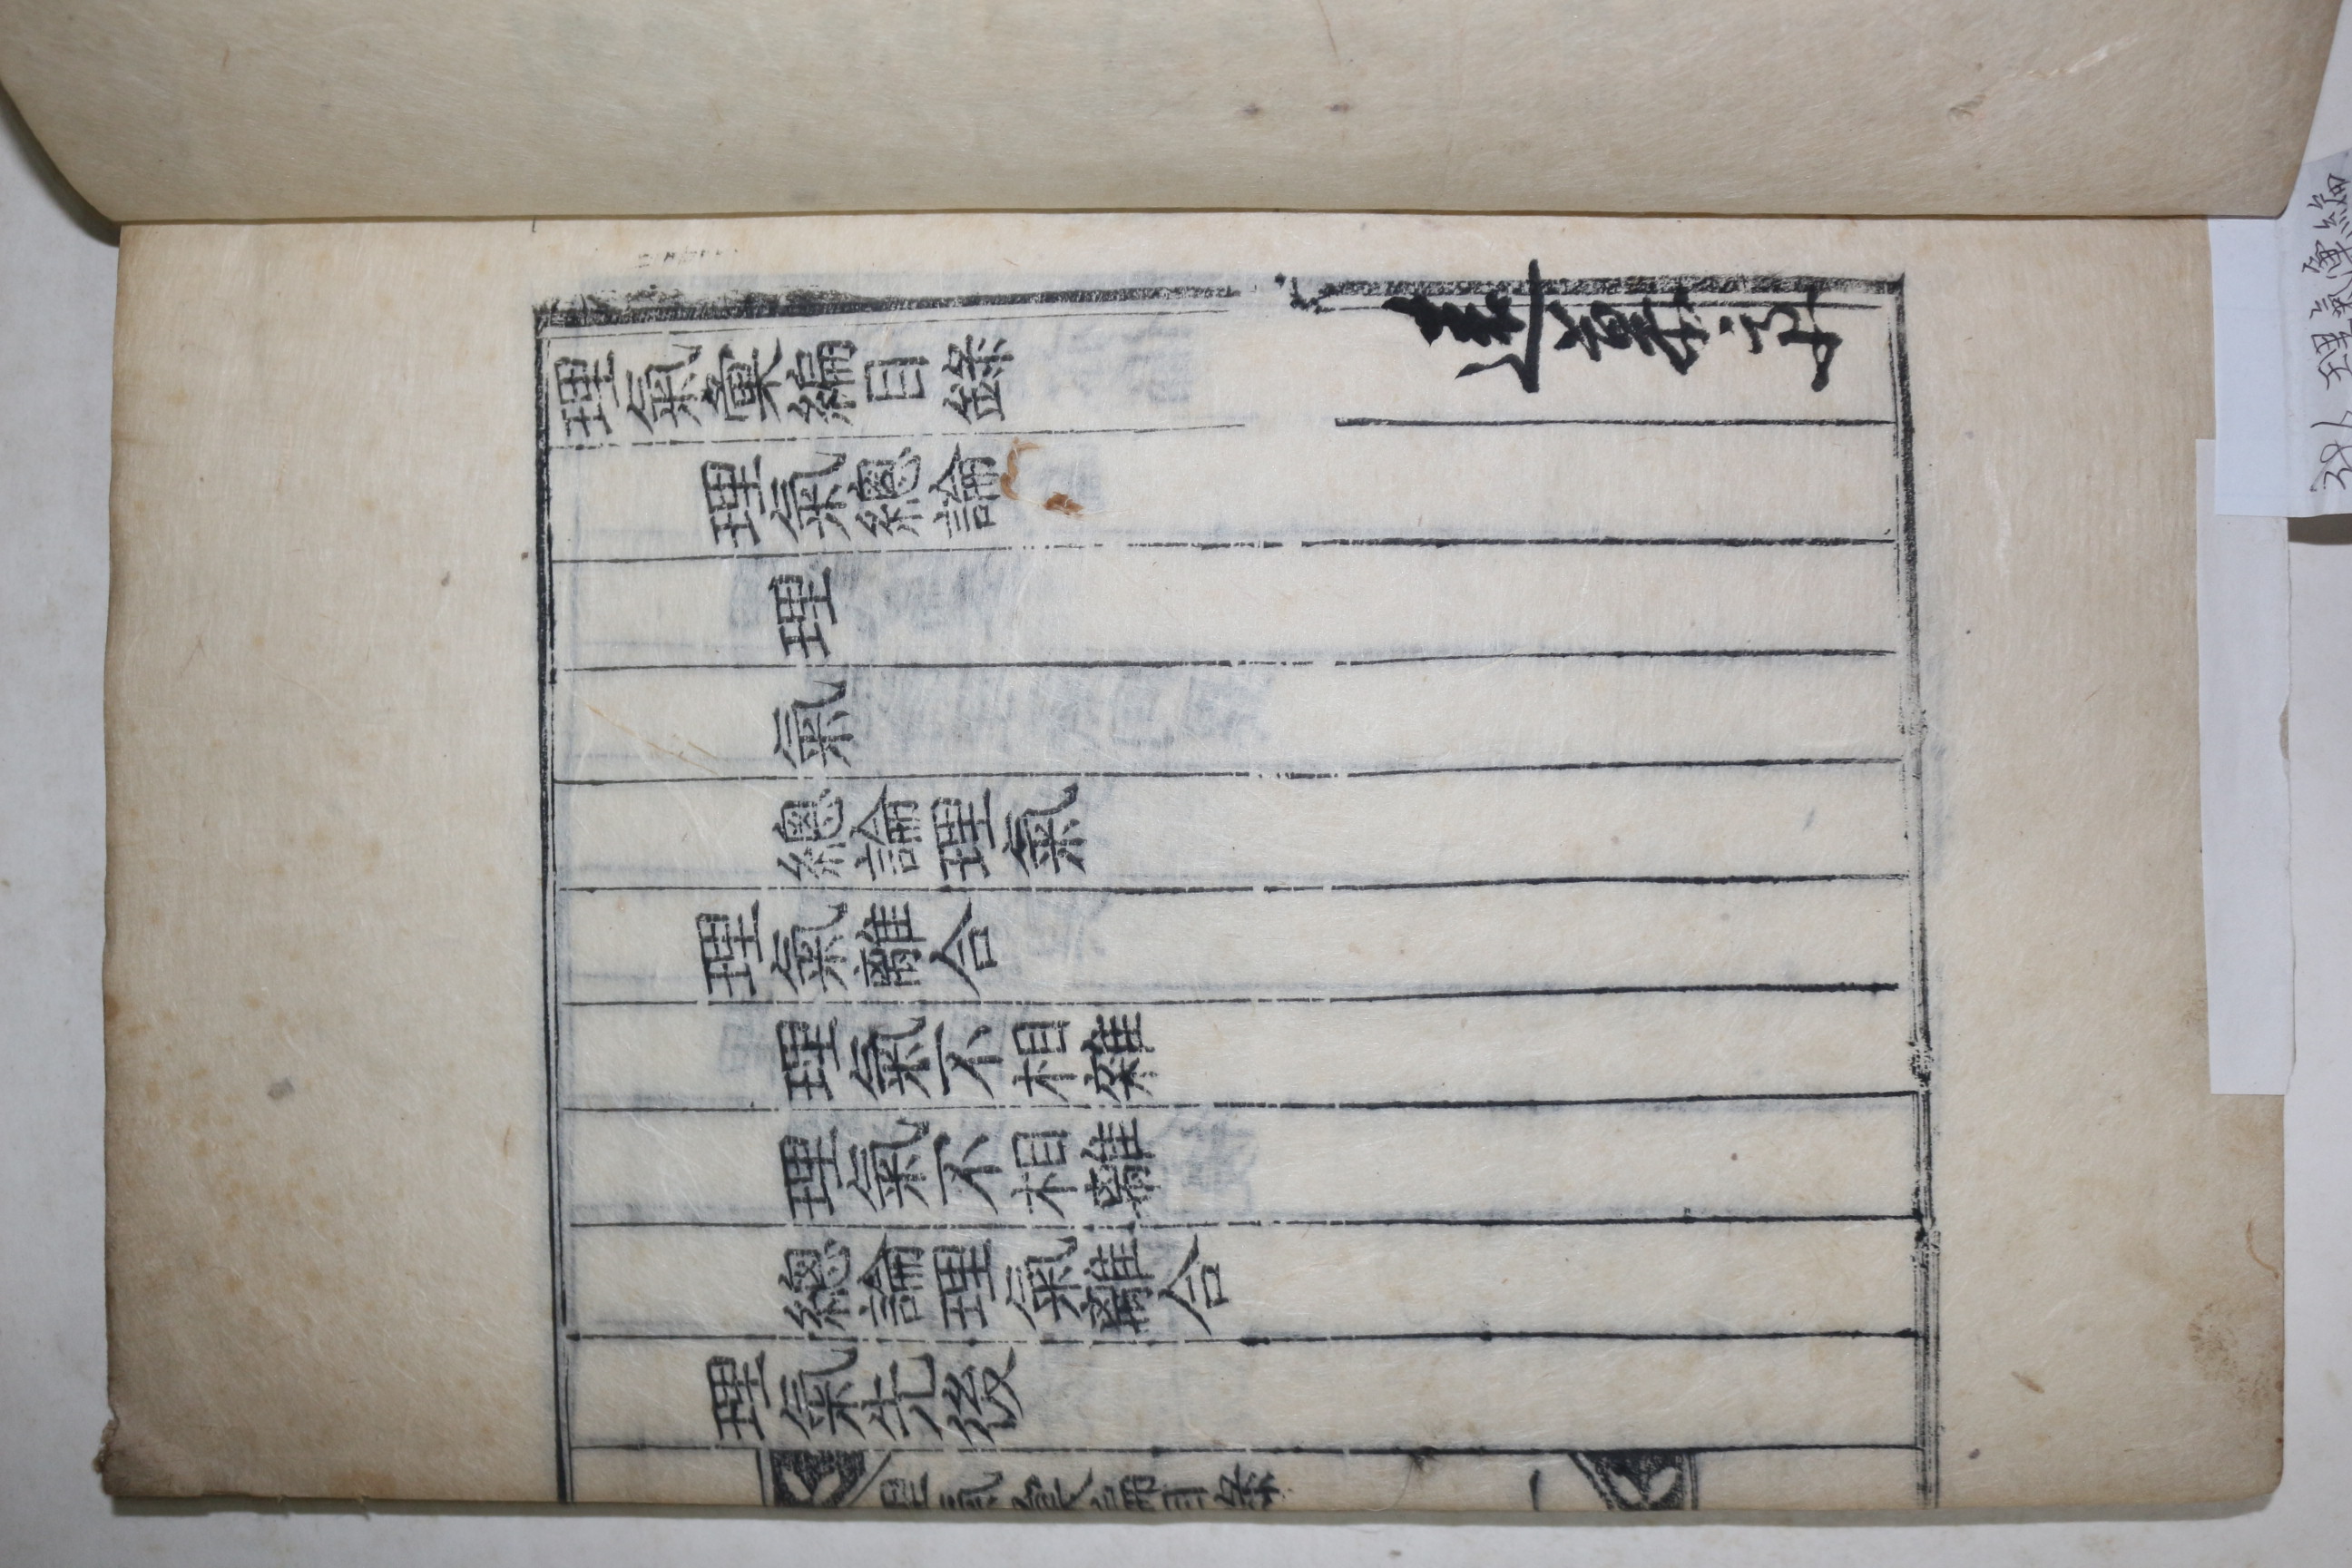 理氣彙編目錄
遠慕亭
理氣總論
理
氣
總論理氣
理氣離合
理氣不相雜
理氣不相離
總論理氣離合
理氣先後
一
理氣彙編